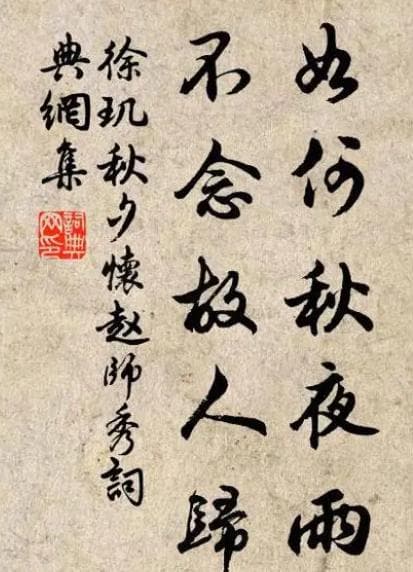 如何秋夜雨
不念故人歸
徐玑秋夕懷赵師秀詞
典網集
詞典網印